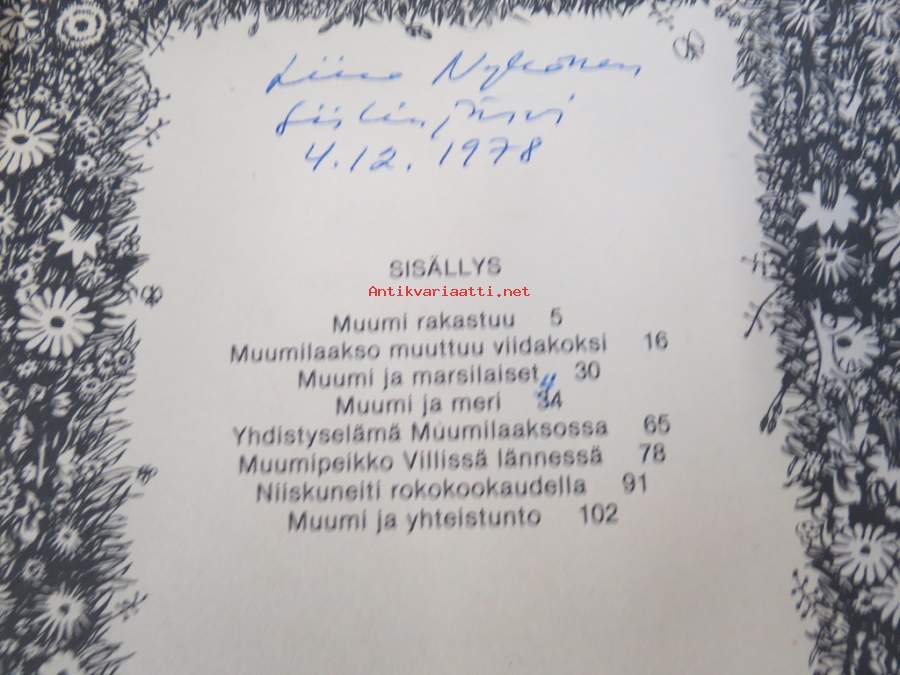 Liisa Nykänen
Siilinjärvi
4.12.1978
SISÄLLYS
Antikvariaatti.net
Muumi rakastuu 5
Muumilaakso muuttuu viidakoksi 16
Muumi ja marsilaiset 30
Muumi ja meri 34
4
Yhdistyselämä Muumilaaksossa 65
Muumipeikko Villissä lännessä 78
Niiskuneiti rokokookaudella 91
Muumi ja yhteistunto 102